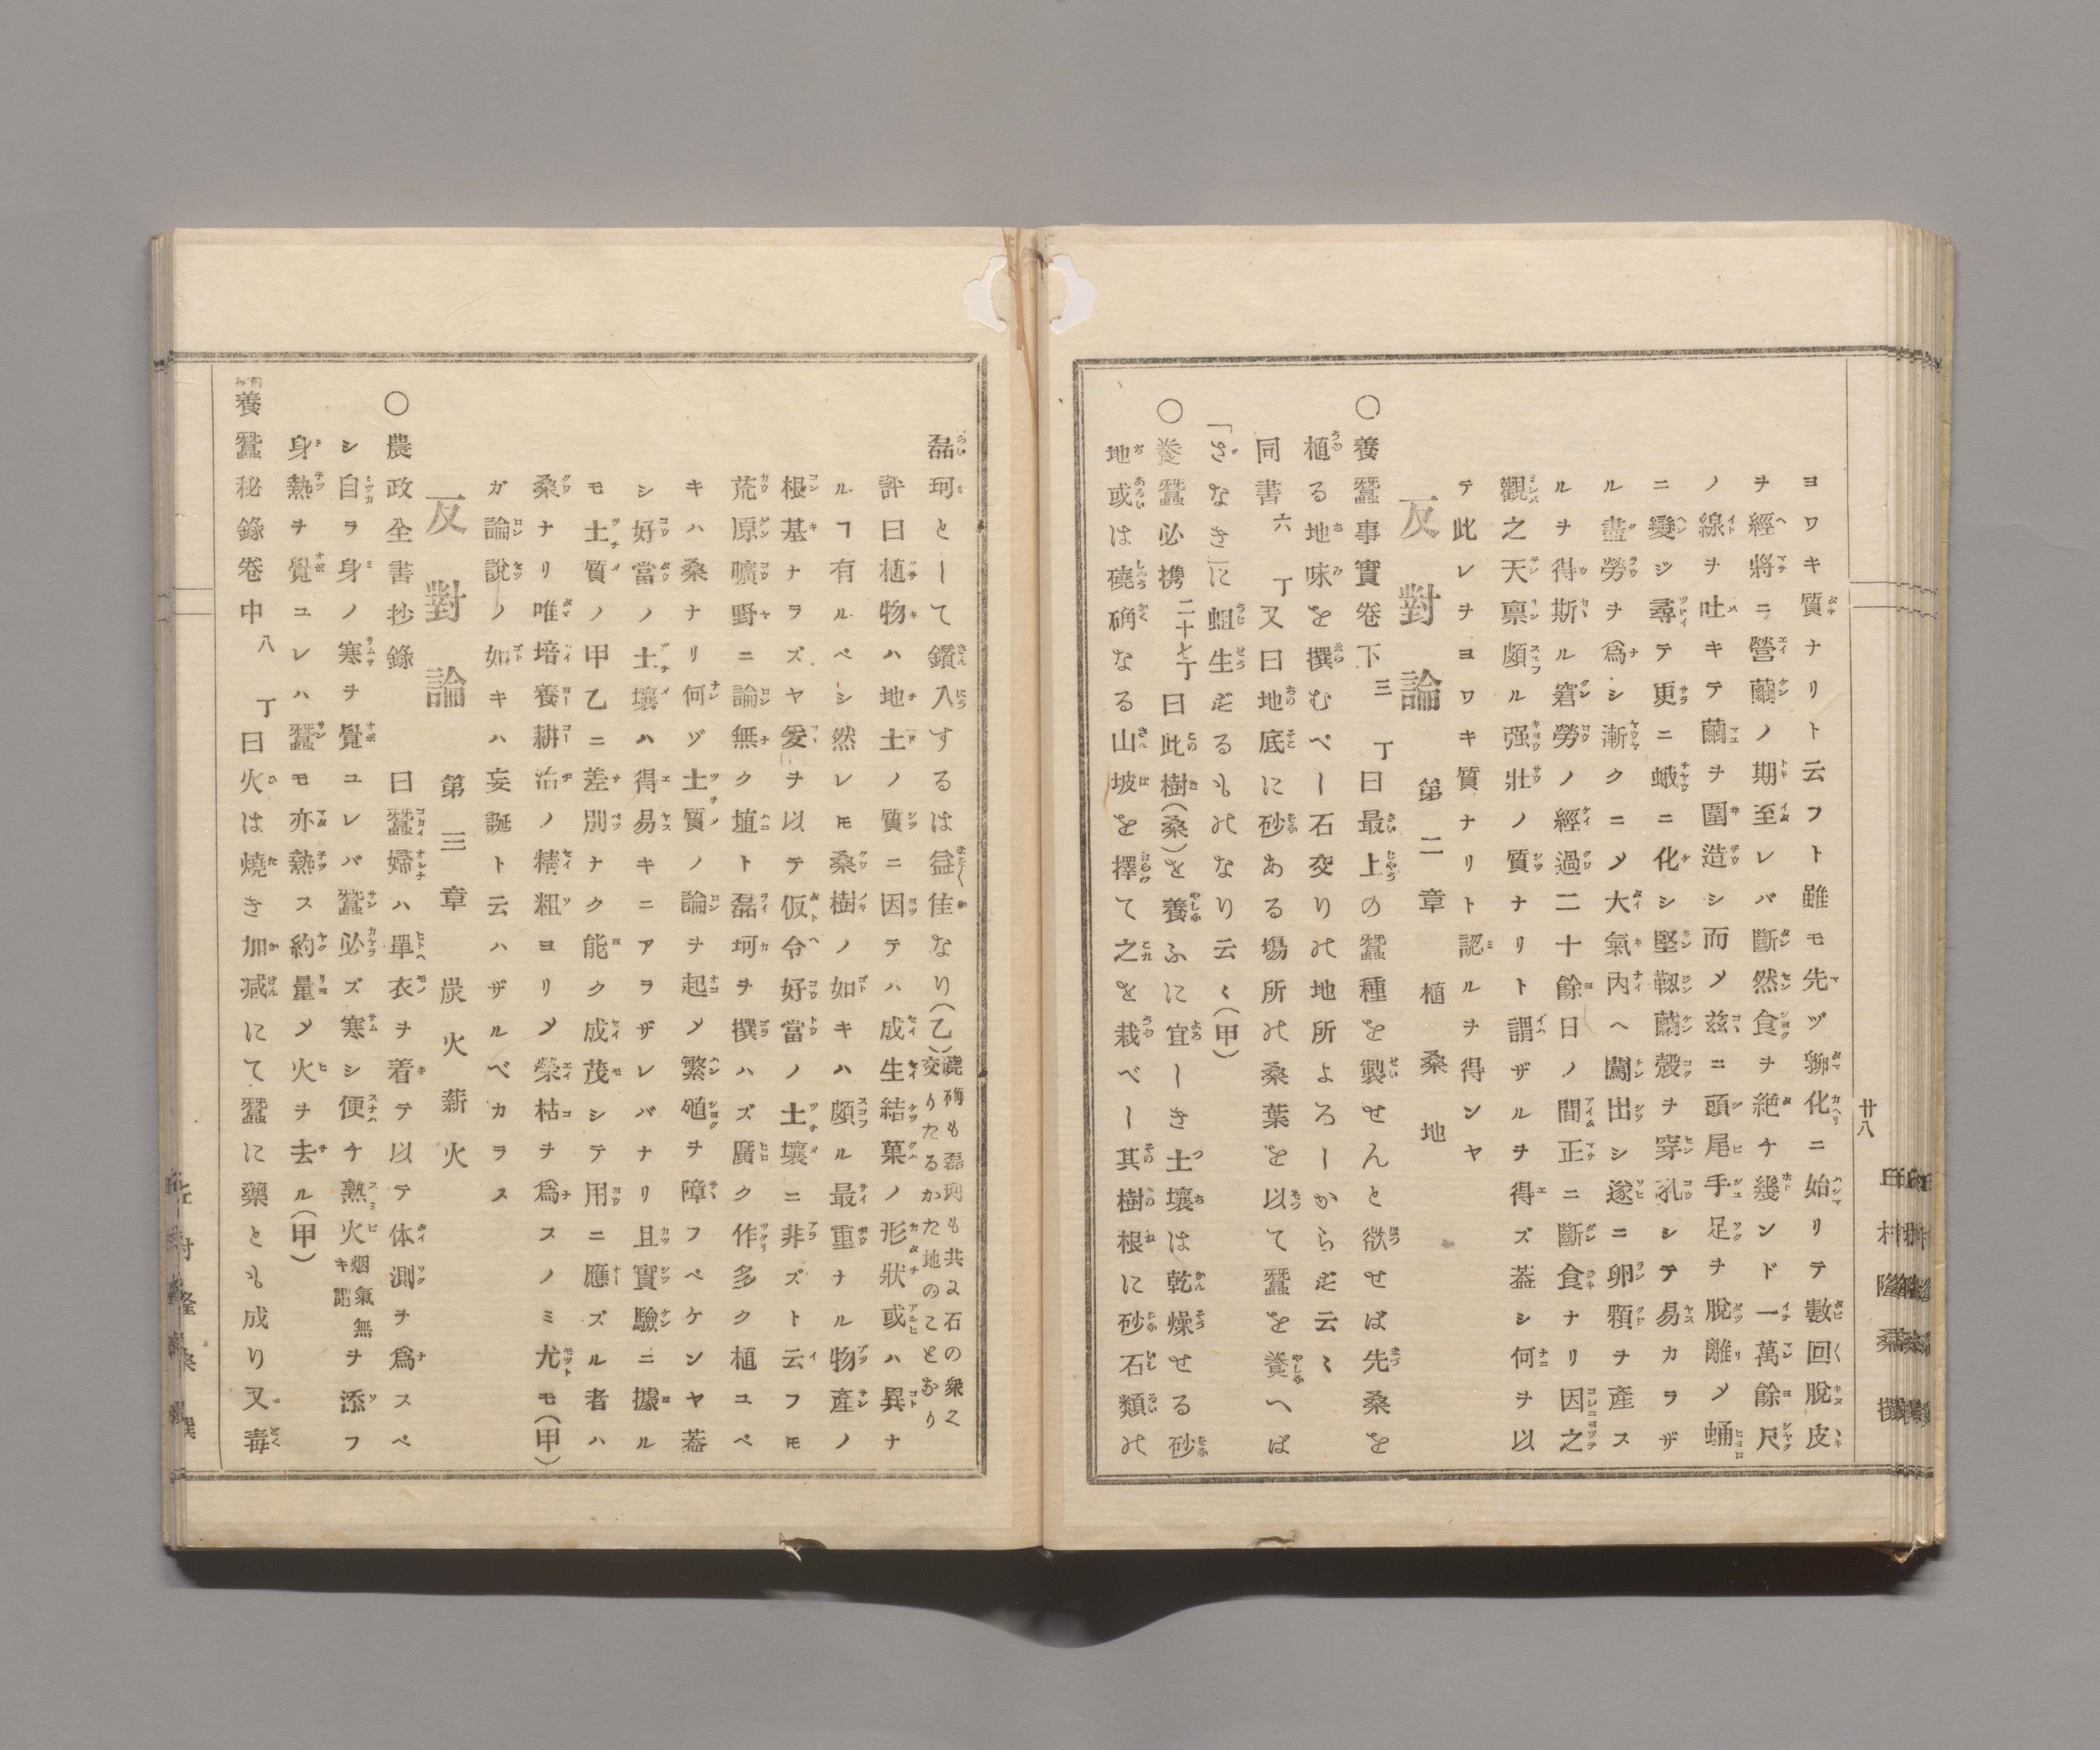 ヨワキ質ナリト云フト雖モ先ヅ孵化ニ始リテ數回脫皮
ヲ經將ニ營繭ノ期至レバ斷然食ヲ絕チ幾ンド一萬餘尺
ノ線ヲ吐キテ繭ヲ圍造シ而メ玆ニ頭尾手足ヲ脫離メ蛹
ニ變ジ尋テ更ニ蛾ニ化シ堅靱繭殼ヲ穿孔シテ易カヲザ
ル盡勞ヲ爲シ漸クニメ大氣內ヘ闖出シ遂ニ卵顆ヲ產ス
ルヲ得斯ル窘勞ノ經過二十餘日ノ間正ニ斷食ナリ因之
觀之天禀頗ル强壯ノ質ナリト謂ザルヲ得ズ葢シ何ヲ以
テ此レヲヨワキ質ナリト認ルヲ得ンヤ
反對論 第二章 植桑地
○養蠶事實卷下三丁曰最上の蠶種を製せんと欲せば先桑を
植る地味を撰むべし石交りの地所よろしからず云〻
同書六丁又曰地底に砂ある塲所の桑葉を以て蠶を養へば
「さなき」に蛆生ずるものなり云〻(甲)
○養蠶必携二十七丁曰此樹(桑)を養ふに宜しき土壤は乾燥せる砂
地或は磽确なる山坡を擇て之を栽べし其樹根に砂石類の
廿八
磊砢として鑽入するは益佳なり(乙)磽确も磊砢も共に石の衆く交りたるかた地のことなり
評曰植物ハ地土ノ質ニ因テハ成生結菓ノ形狀或ハ異ナ
ルヿ有ルベシ然レモ桑樹ノ如キハ頗ル最重ナル物產ノ
根基ナヲズヤ爰ヲ以テ仮令好當ノ土壤ニ非ズト云フモ
荒原曠野ニ論無ク埴ト磊砢ヲ撰ハズ廣ク作多ク植ユベ
キハ桑ナリ何ゾ土質ノ論ヲ起メ繁殖ヲ障フベケンヤ葢
シ好當ノ土壤ハ得易キニアヲザレバナリ且實驗ニ據ル
モ土質ノ甲乙ニ差別ナク能ク成茂シテ用ニ應ズル者ハ
桑ナリ唯培養耕治ノ精粗ヨリメ榮枯ヲ爲スノミ尤モ(甲)
ガ論說ノ如キハ妄誕ト云ハザルベカヲス
反對論 第三章 炭火薪火
○農政全書抄錄 曰蠶婦ハ單衣ヲ着テ以テ体測ヲ爲スベ
シ自ヲ身ノ寒ヲ覺ユレバ蠶必ズ寒シ便チ熟火烟氣無キ謂ヲ添フ
身熱ヲ覺ユレハ蠶モ亦熱ス約量メ火ヲ去ル(甲)
養蠶秘錄卷中八丁曰火は燒き加减にて蠶に藥とも成り又毒